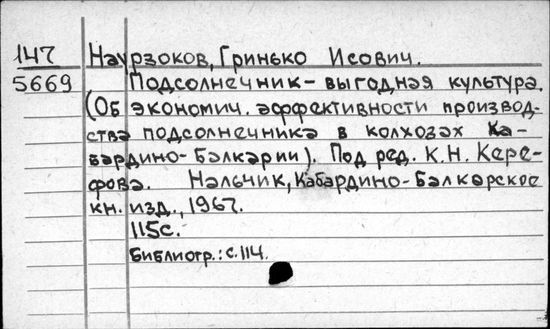 147 Наурзоков, Гринько Исович.
5669 Подсолнечник – выгодная культура.
(Об экономич. эффективности производ-
ства подсолнечника в колхозах Ка-
бардино-Балкарии). Под ред. К.Н. Кере-
фова. Нальчик, Кабардино-Балкарское
кн. изд., 1967.
115с.
Библиогр.: с.114.